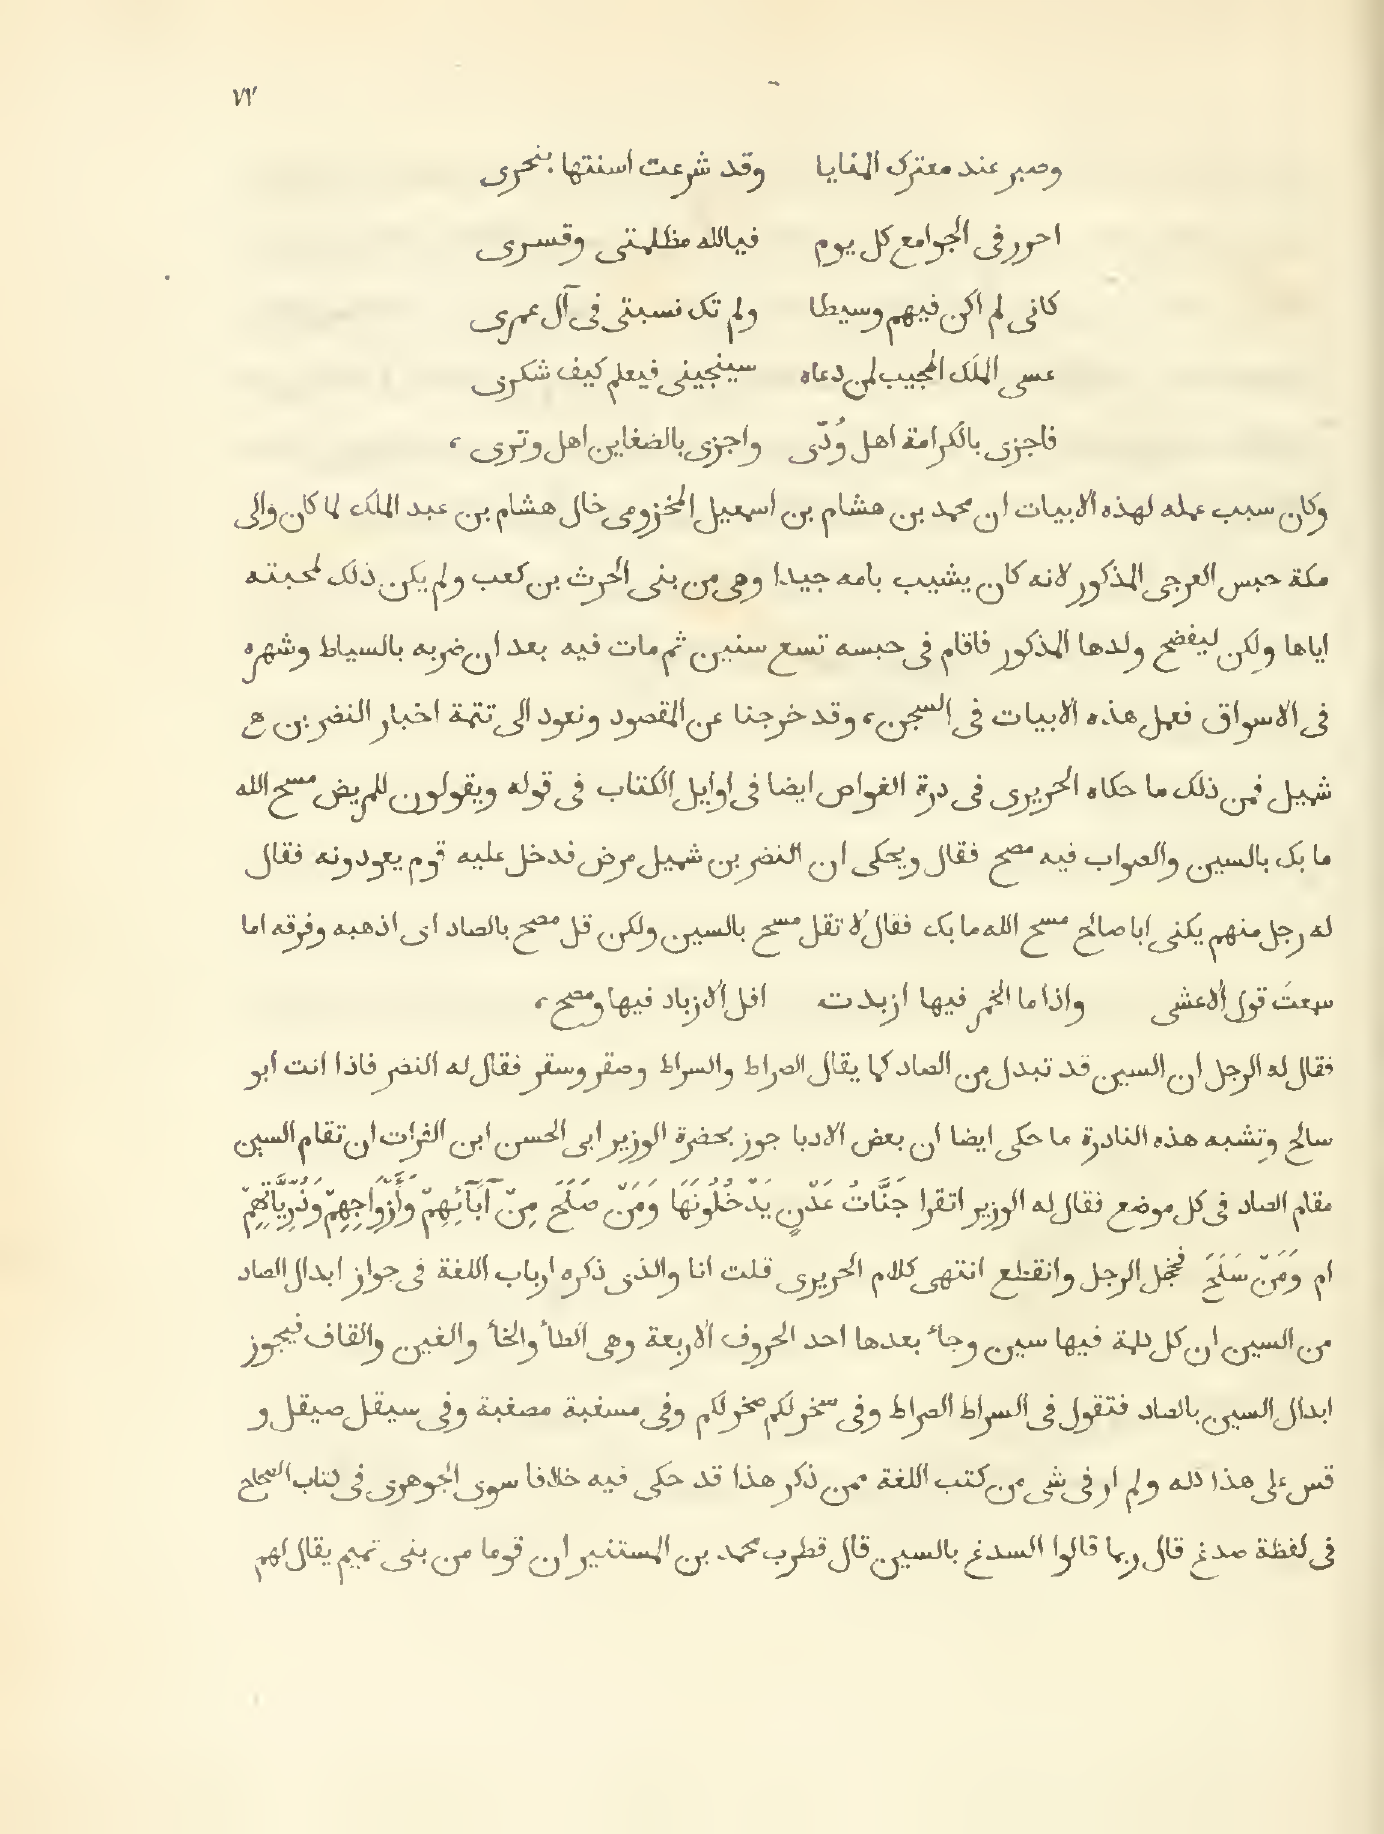 ٧٢
وصبر عند معترك المنايا وقد شرعت اسنتها بنحرى
احرر فى الجوامع كل يوم فيالله مظلمتى وقسرى
كانى لم اكن فيهم وسيطا ولم تك نسبتى فى آل عمرى
عسى الملك المجيب لمن دعاه سينجينى فيعلم كيف شكرى
فاجزى بالكرامة اهل وُدّى واجزى بالضغاين اهل وترى ،
وكان سبب عمله لهذه الابيات ان محمد بن هشام بن اسمعيل المخزومى خال هشام بن عبد الملك لما كان والى
مكة حبس العرجى المذكور لانه كان يشبب بامه جيدا وهى من بنى الحرث بن كعب ولم يكن ذلك لمحبته
اياها ولكن ليفضح ولدها المذكور فاقام فى حبسه تسع سنين ثم مات فيه بعد ان ضربه بالسياط وشهره
فى الاسواق فعمل هذه الابيات فى السجن ، وقد خرجنا عن المقصود ونعود الى تتمة اخبار النضر بن
شميل فمن ذلك ما حكاه الحريرى فى درة الغواص ايضا فى اوايل الكتاب فى قوله ويقولون للمريض مسح الله
ما بك بالسين والصواب فيه مصح فقال ويحكى ان النضر بن شميل مرض فدخل عليه قوم يعودونه فقال
له رجل منهم يكنى ابا صالح مسح الله ما بك فقال لا تقل مسح بالسين ولكن قل مصح بالصاد اى اذهبه وفرقه اما
سمعتَ قول الاعشى واذا ما الخمر فيها ازبدت افل الازباد فيها ومصح ،
فقال له الرجل ان السين قد تبدل من الصاد كما يقال الصراط والسراط وصقر وسقر فقال له النضر فاذا انت ابو
سالح وتشبه هذه النادرة ما حكى ايضا ان بعض الادبا جوز بحضرة الوزير ابى الحسن ابن الفرات ان تقام السين
مقام الصاد فى كل موضع فقال له الوزير اتقرا جَنَّاتُ عَدْنٍ يَدْخُلُونَهَا وَمَنْ صَلَحَ مِنْ آبَآئِهِمْ وَأَزْوَاجِهِمْ وَذُرِّيَّاتِهِمْ
ام وَمَنْ سَلَحَ فخجل الرجل وانقطع انتهى كلام الحريرى قلت انا والذى ذكره ارباب اللغة فى جواز ابدال الصاد
من السين ان كل كلمة فيها سين وجاء بعدها احد الحروف الاربعة وهى الطأ والخأ والغين والقاف فيجوز
ابدال السين بالصاد فتقول فى السراط الصراط وفى سخر لكم صخر لكم وفى مسغبة مصغبة وفى سيقل صيقل و
قس على هذا كله ولم ار فى شى من كتب اللغة ممن ذكر هذا قد حكى فيه خلافا سوى الجوهرى فى كتاب الصحاح
فى لفظة صدغ قال ربما قالوا السدغ بالسين قال قطرب محمد بن المستنير ان قوما من بنى تميم يقال لهم